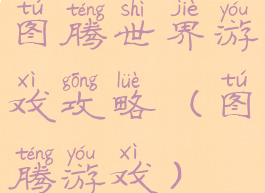 tú téng shì jiè yóu
图腾世界游
xì gōng lüè tú
戏攻略（图
téng yóu xì
腾游戏）